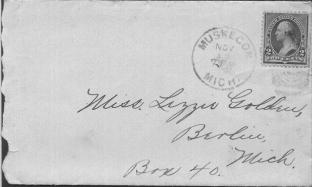 MUSKEGON
NOV
MICH.
2 2
TWO CENTS
Miss. Lizzie Golden,
Berlin,
Mich.
Box 40.